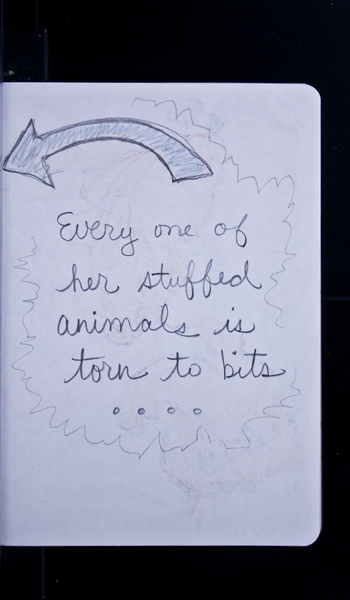 Every one of
her stuffed
animals is
torn to bits